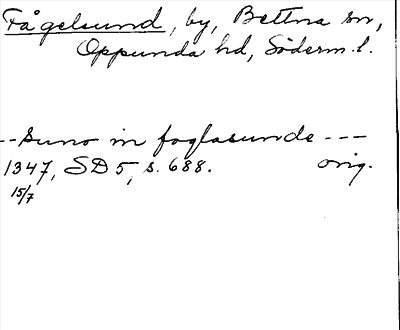 Fågelsund, by, Bettna sn,
Oppunda hd, Söderm.l.
--suno in foglasunde ---
1347, SD 5, s. 688. orig.
15/7